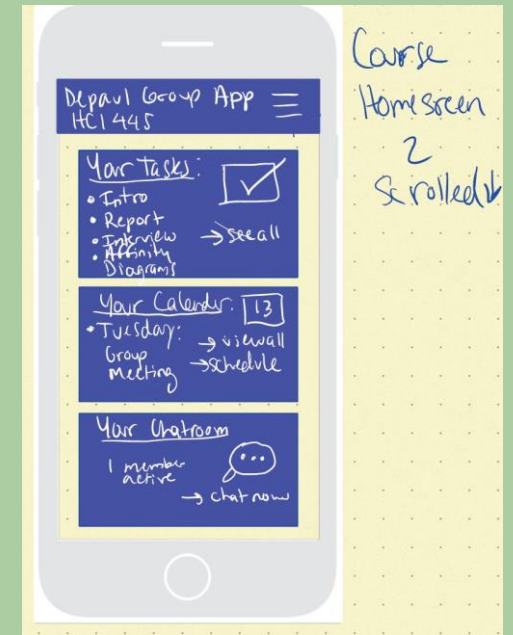 Depaul Group App
HCI 445
Your Tasks:
• Intro
• Report
• Interview
→ see all
• Affinity
Diagrams
Your Calender:
13
• Tuesday:
Group
Meeting
→ view all
→ schedule
Your Chatroom
1 member
active
→ chat now
Course
Homescreen
2
Scrolled ↓